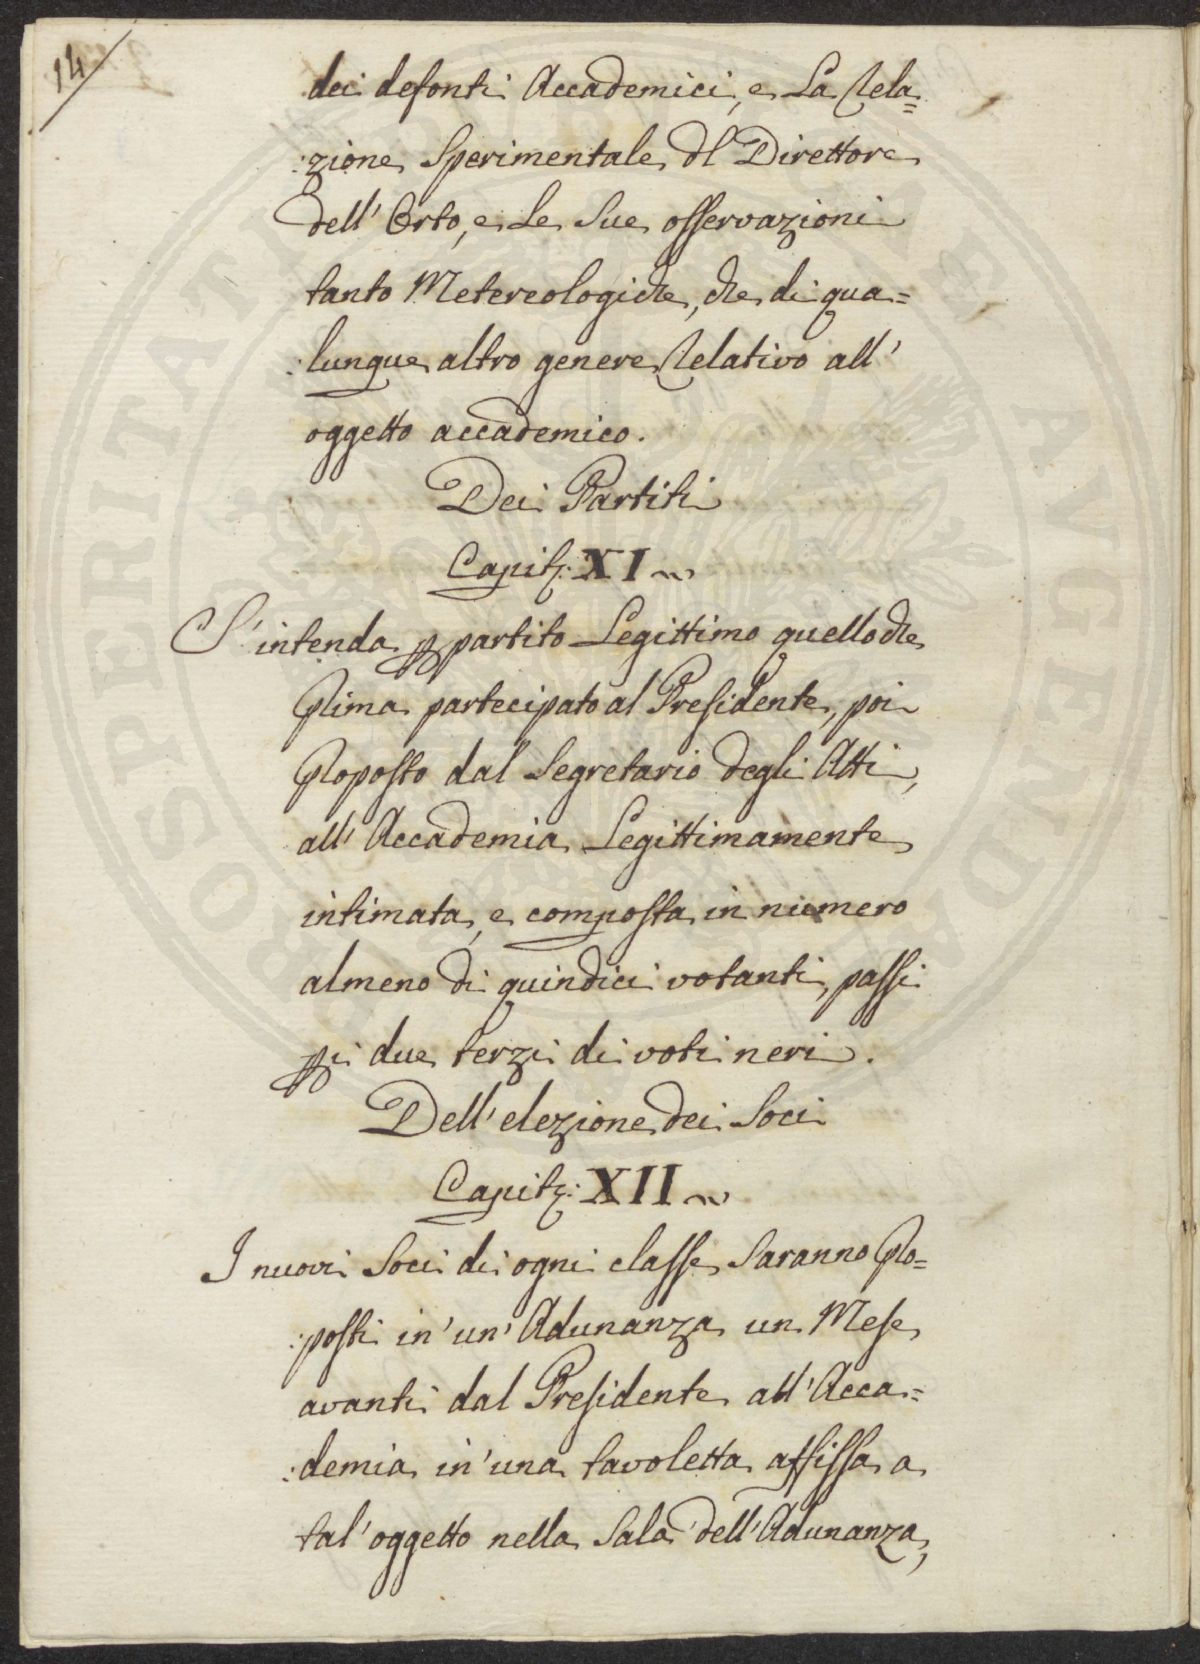 14
dei defonti Accademici, e La Rela=
:zione Sperimentale dl Direttore
dell' Orto, e Le Sue osservazioni
tanto Metereologiche, che di qua=
:lunque altro genere Relativo all'
oggetto accademico.
Dei Partiti
Capit.: XI
S'intenda p partito Legittimo quello che
Prima partecipato al Presidente, poi
Proposto dal Segretario degli Atti,
all' Accademia Legittimamente
intimata, e composta in numero
almeno di quindici votanti, passi
pi due terzi di voti neri.
Dell' elezione dei Soci
Capit.: XII
I nuovi Soci di ogni classe Saranno Pro=
:posti in' un' Adunanza un Mese
avanti dal Presidente all' Acca=
:demia in' una tavoletta affissa a
tal' oggetto nella Sala dell' Adunanza,
PROSPERITATI PUBLICAE AUGENDAE